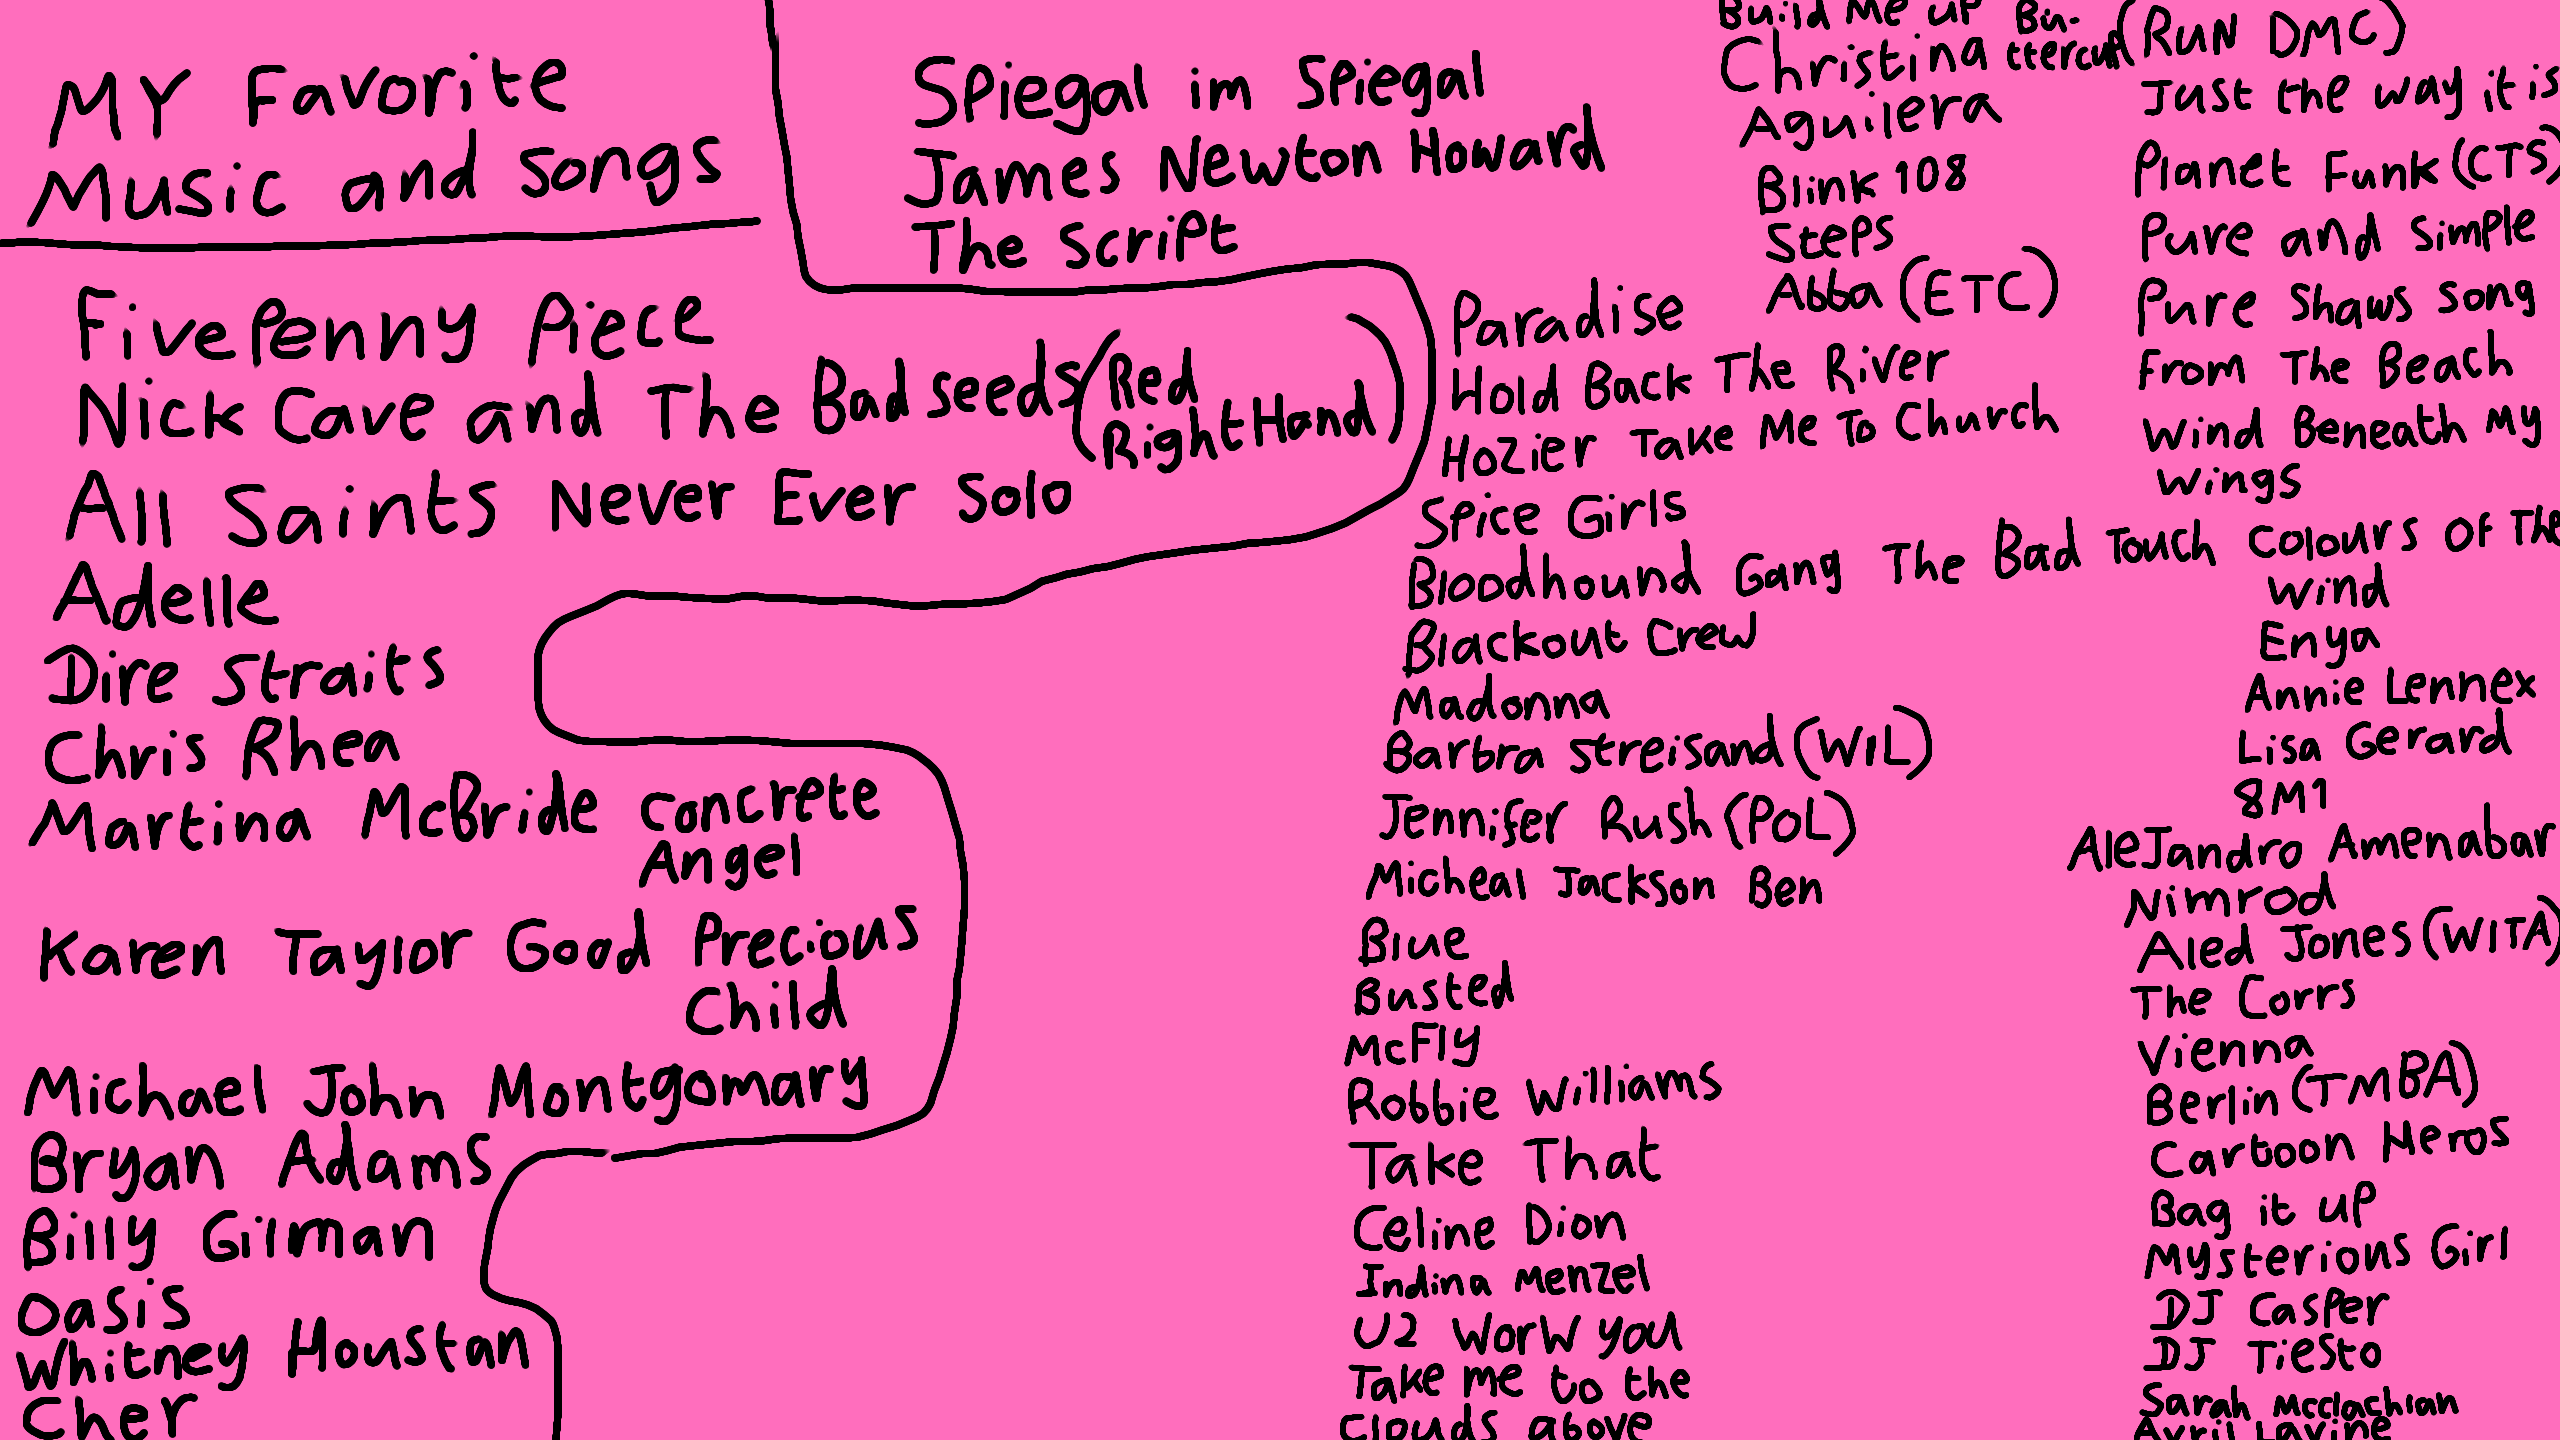 MY Favorite
Music and songs
FivePenny Piece
Nick Cave and The Bad seeds (Red
Right Hand)
All Saints Never Ever Solo
Adelle
Dire Straits
Chris Rhea
Martina McBride Concrete
Angel
Karen Taylor Good Precious
Child
Michael John Montgomary
Bryan Adams
Billy Gilman
Oasis
Whitney Houstan
Cher
Spiegal im Spiegal
James Newton Howard
The Script
Build Me up Bu-
ttercup
Christina
Aguilera
Blink 108
Steps
Abba (ETC)
Paradise
Hold Back The River
Hozier Take Me To Church
Spice Girls
Bloodhound Gang The Bad Touch
Blackout Crew
Madonna
Barbra Streisand (WIL)
Jennifer Rush (POL)
Micheal Jackson Ben
Blue
Busted
McFly
Robbie Williams
Take That
Celine Dion
Indina Menzel
U2 WorW you
Take me to the
Clouds above
(RUN DMC)
Just the way it is
Planet Funk (CTS)
Pure and Simple
Pure Shaws song
From The Beach
Wind Beneath My
Wings
Colours Of The
Wind
Enya
Annie Lennex
Lisa Gerard
8M1
AleJandro Amenabar
Nimrod
Aled Jones (WITA)
The Corrs
Vienna
Berlin (TMBA)
Cartoon Heros
Bag it up
Mysterious Girl
DJ Casper
DJ Tiesto
Sarah Mcclachlan
Avril Lavine